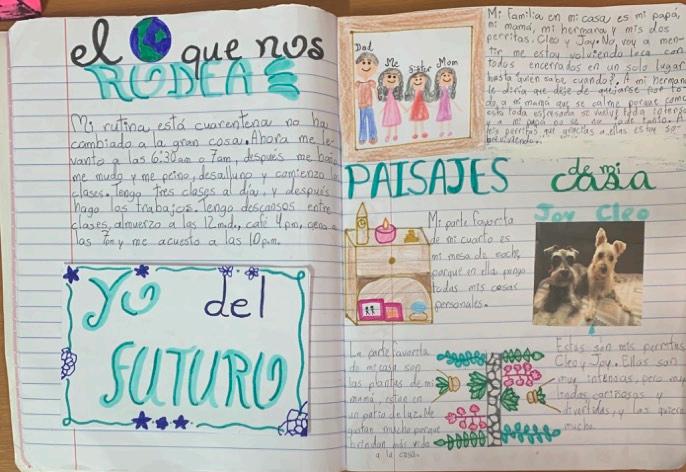 el que nos
RODEA
Mi rutina está cuarentena no ha
cambiado a la gran cosa. Ahora me le-
vanto a las 6:30am o 7am, después me baño
me mudo y me peino, desayuno y comienzo
clases. Tengo tres clases al día, y después
hago los trabajos. Tengo descansos entre
clases, almuerzo a las 12md, café 4pm, ceno a
las 7pm y me acuesto a las 10pm.
YO del
FUTURO
Dad
Me
Sister
Mom
Mi familia en mi casa es mi papá,
mi mamá, mi hermana y mis dos
perritas. Cleo y Joy. No voy a men-
tir me estoy volviendo loca con
todos encerrados en un solo lugar
hasta quien sabe cuando?, A mi herman
le diría que deje de quejarse por to-
do, a mi mamá que se calme porque como
está toda estresada se vuelve toda intensa
y a mi papá no se me
perritas que gracias a ellas estoy so-
breviviendo.
PAISAJES de mi
casa
Mi parte favorita
de mi cuarto es
mi mesa de noche
porque en ella pongo
todas mis cosas
personales.
Joy Cleo
La parte favorita
de mi casa son
las plantas de mi
mamá, estan en
un patio de luz. Me
gustan mucho porque
brindan más vida
a la casa.
Estas son mis perritas
Cleo y Joy. Ellas son
muy intensas, pero muy
lindas cariñosas y
divertidas, y las quiero
mucho.